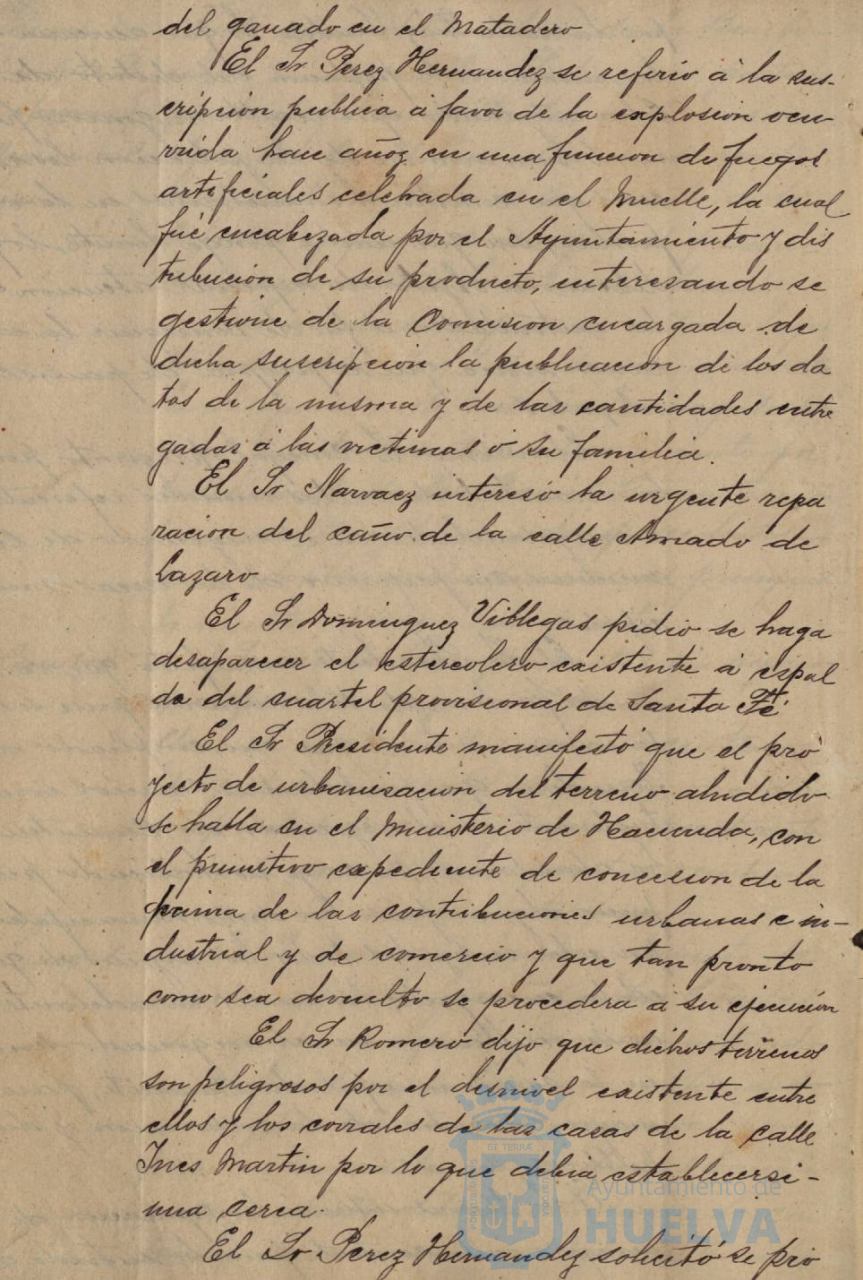 del ganado en el Matadero
El Sr Perez Hernandez se refirió á la sus-
cripción publica á favor de la explosion ocu-
rrida hace años en una funcion de fuegos
artificiales celebrada en el Muelle, la cual
fué encabezada por el Ayuntamiento y dis
tribución de su producto, interesando se
gestione de la Comision encargada de
dicha suscripción la publicacion de los da
tos de la misma y de las cantidades entre
gadas á las victimas ó su familia.
El Sr Narvaez interesó la urgente repa
racion del caño de la calle Amado de
Lazaro
El Sr Dominguez Villegas pidio se haga
desaparecer el estercolero existente á espal
da del cuartel provisional de Santa Fé
El Sr Presidente manifestó que el pro
yecto de urbanisacion del terreno aludido
se halla en el Ministerio de Hacienda, con
el primitivo expediente de concesion de la
prima de las contribuciones urbanas e in-
dustrial y de comercio y que tan pronto
como sea devuelto se procedera a su ejecución
El Sr Romero dijo que dichos terrenos
son peligrosos por el desnivel existente entre
ellos y los corrales de las casas de la calle
Ines Martin por lo que debia establecerse
una cerca.
El Sr Perez Hernandez solicitó se pro
Ayuntamiento de
HUELVA